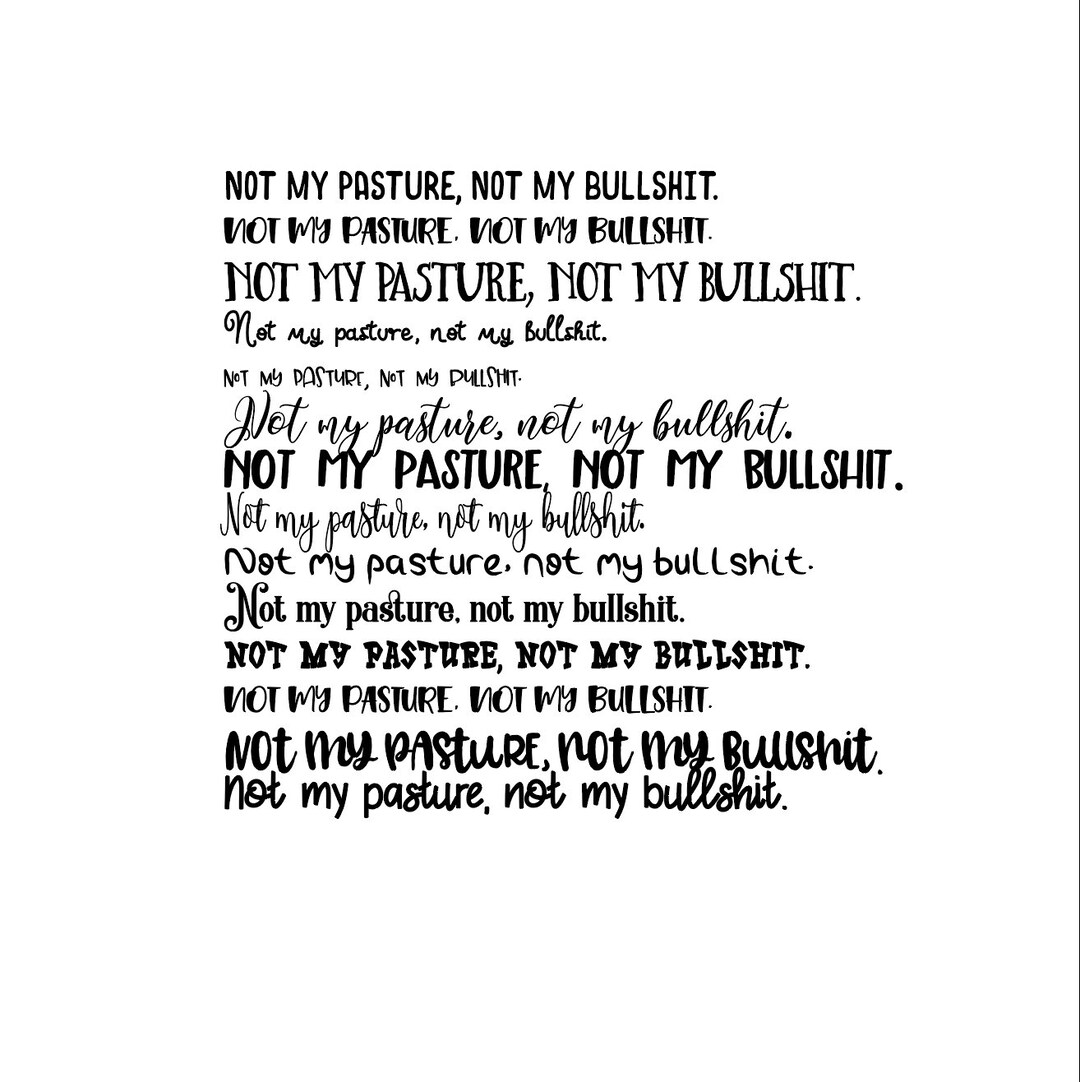 NOT MY PASTURE, NOT MY BULLSHIT.
NOT MY PASTURE. NOT MY BULLSHIT.
NOT MY PASTURE, NOT MY BULLSHIT.
Not my pasture, not my bullshit.
NOT MY PASTURE, NOT MY BULLSHIT.
Not my pasture, not my bullshit.
NOT MY PASTURE, NOT MY BULLSHIT.
Not my pasture, not my bullshit.
Not my pasture, not my bullshit.
Not my pasture, not my bullshit.
NOT MY PASTURE, NOT MY BULLSHIT.
NOT MY PASTURE. NOT MY BULLSHIT.
Not My PAStURE, not My Bullshit.
Not my pasture, not my bullshit.